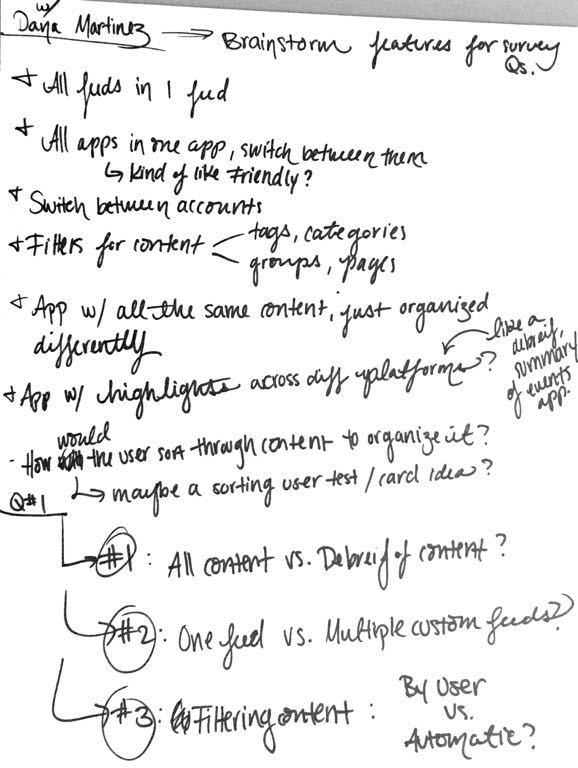 w/
Dana Martinez → Brainstorm features for survey
Qs.
+ All feeds in 1 feed
+ All apps in one app, switch between them
↳ kind of like Friendly?
+ Switch between accounts
+ Filters for content < tags, categories
groups, pages
+ App w/ all the same content, just organized
differently
+ App w/ highlights across diff platforms?
like a
debreif,
summary
of events
app.
would
- How the user sort through content to organize it?
Q#1 ↳ maybe a sorting user test / card idea?
#1: All content vs. Debreif of content?
#2: One feed vs. Multiple custom feeds?
#3: Filtering content: By User
vs.
Automatic?